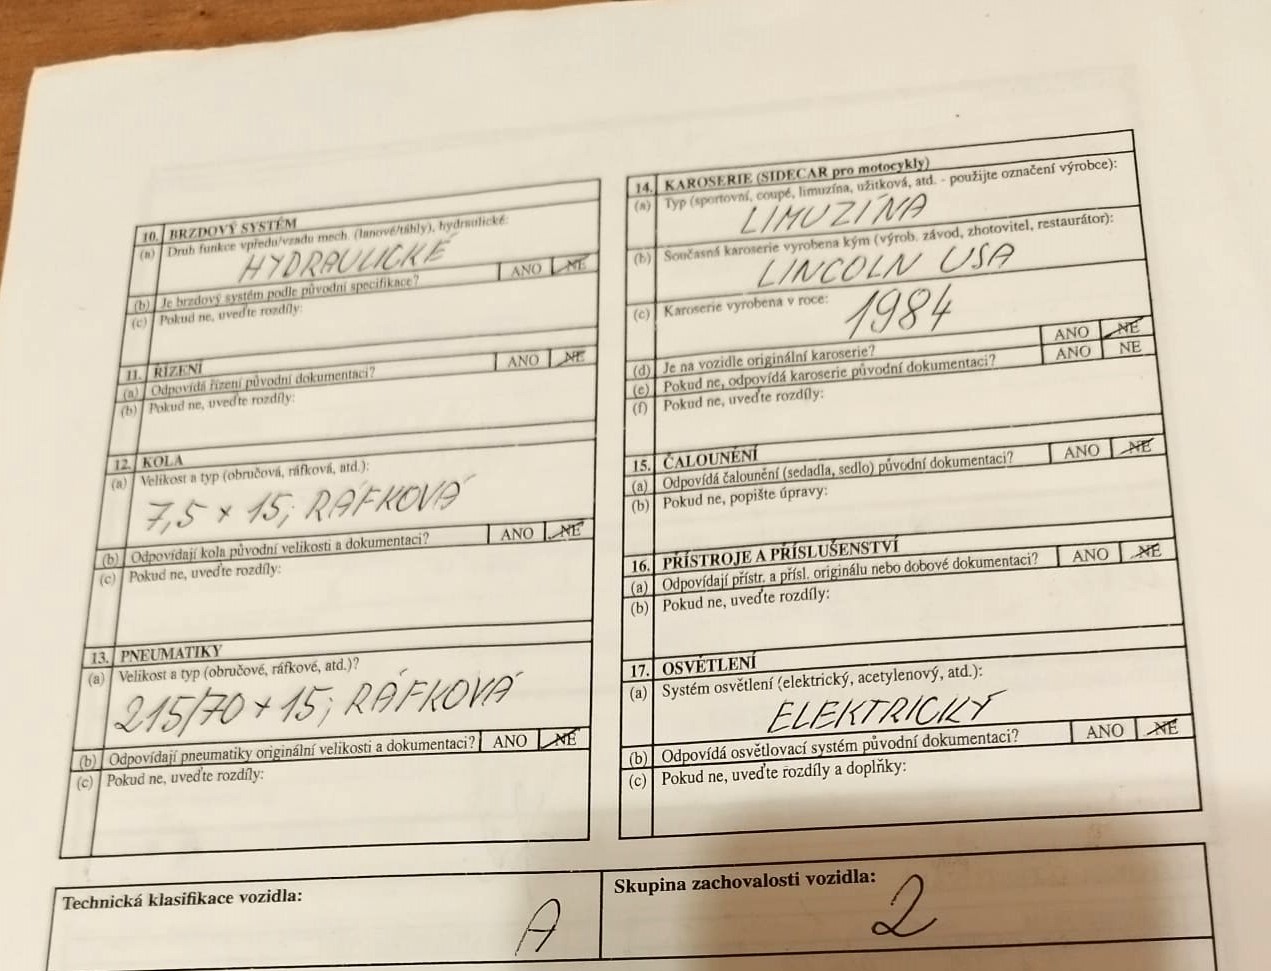 10. BRZDOVÝ SYSTÉM
(a) Druh funkce vpředu/vzadu mech. (lanové/táhly), hydraulické:
HYDRAULICKÉ
(b) Je brzdový systém podle původní specifikace? ANO NE
(c) Pokud ne, uveďte rozdíly:
11. ŘÍZENÍ
(a) Odpovídá řízení původní dokumentaci? ANO NE
(b) Pokud ne, uveďte rozdíly:
12. KOLA
(a) Velikost a typ (obručová, ráfková, atd.):
7,5 × 15; RÁFKOVÁ
(b) Odpovídají kola původní velikosti a dokumentaci? ANO NE
(c) Pokud ne, uveďte rozdíly:
13. PNEUMATIKY
(a) Velikost a typ (obručové, ráfkové, atd.)?
215/70 × 15; RÁFKOVÁ
(b) Odpovídají pneumatiky originální velikosti a dokumentaci? ANO NE
(c) Pokud ne, uveďte rozdíly:
14. KAROSERIE (SIDECAR pro motocykly)
(a) Typ (sportovní, coupé, limuzína, užitková, atd. - použijte označení výrobce):
LIMUZÍNA
(b) Současná karoserie vyrobena kým (výrob. závod, zhotovitel, restaurátor):
LINCOLN USA
(c) Karoserie vyrobena v roce:
1984
(d) Je na vozidle originální karoserie? ANO NE
(e) Pokud ne, odpovídá karoserie původní dokumentaci? ANO NE
(f) Pokud ne, uveďte rozdíly:
15. ČALOUNĚNÍ
(a) Odpovídá čalounění (sedadla, sedlo) původní dokumentaci? ANO NE
(b) Pokud ne, popište úpravy:
16. PŘÍSTROJE A PŘÍSLUŠENSTVÍ
(a) Odpovídají přístr. a přísl. originálu nebo dobové dokumentaci? ANO NE
(b) Pokud ne, uveďte rozdíly:
17. OSVĚTLENÍ
(a) Systém osvětlení (elektrický, acetylenový, atd.):
ELEKTRICKÝ
(b) Odpovídá osvětlovací systém původní dokumentaci? ANO NE
(c) Pokud ne, uveďte rozdíly a doplňky:
Technická klasifikace vozidla:
A
Skupina zachovalosti vozidla:
2